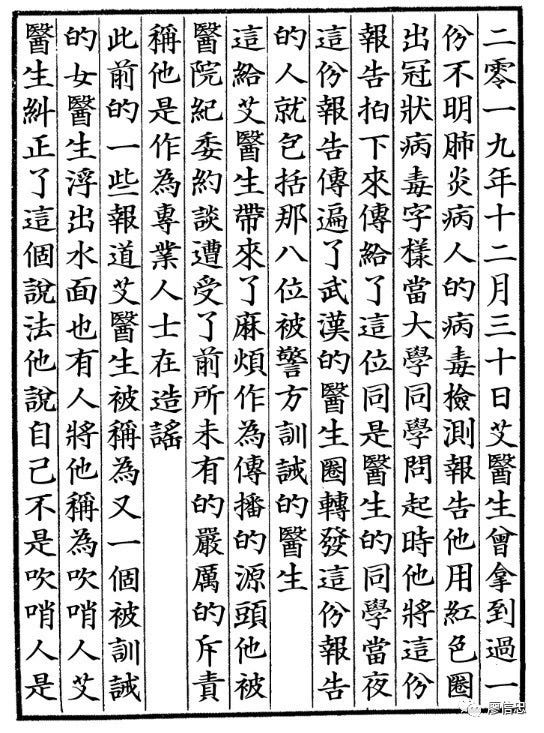 二零一九年十二月三十日艾醫生曾拿到過一
份不明肺炎病人的病毒檢測報告他用紅色圈
出冠狀病毒字樣當大學同學問起時他將這份
報告拍下來傳給了這位同是醫生的同學當夜
這份報告傳遍了武漢的醫生圈轉發這份報告
的人就包括那八位被警方訓誡的醫生
這給艾醫生帶來了麻煩作為傳播的源頭他被
醫院紀委約談遭受了前所未有的嚴厲的斥責
稱他是作為專業人士在造謠
此前的一些報道艾醫生被稱為又一個被訓誡
的女醫生浮出水面也有人將他稱為吹哨人艾
醫生糾正了這個說法他說自己不是吹哨人是
廖信忠